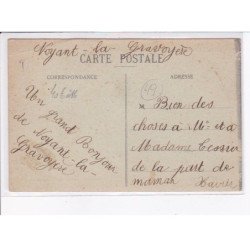 Noyant-la-Gravoyère
CARTE POSTALE
CORRESPONDANCE
ADRESSE
Un
Grand Bonjour
de Noyant-la-
Gravoyère
Bien des
choses a Mr et a
Madame Tessier
de la part de
maman